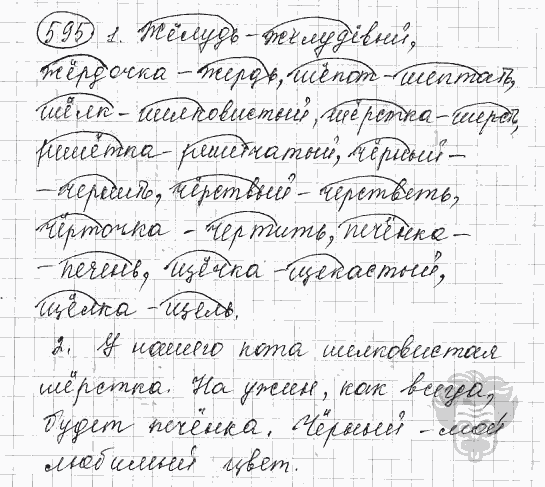 595 1. Жёлудь – желудёвый,
жёрдочка – жердь, шёпот – шептать,
шёлк – шелковистый, шёрстка – шерсть,
решётка – решетчатый, чёрный –
– чернить, чёрствый – черстветь,
чёрточка – чертить, печёнка –
– печень, щёчка – щекастый,
щёлка – щель.
2. У нашего кота шелковистая
шёрстка. На ужин, как всегда,
будет печёнка. Чёрный – мой
любимый цвет.